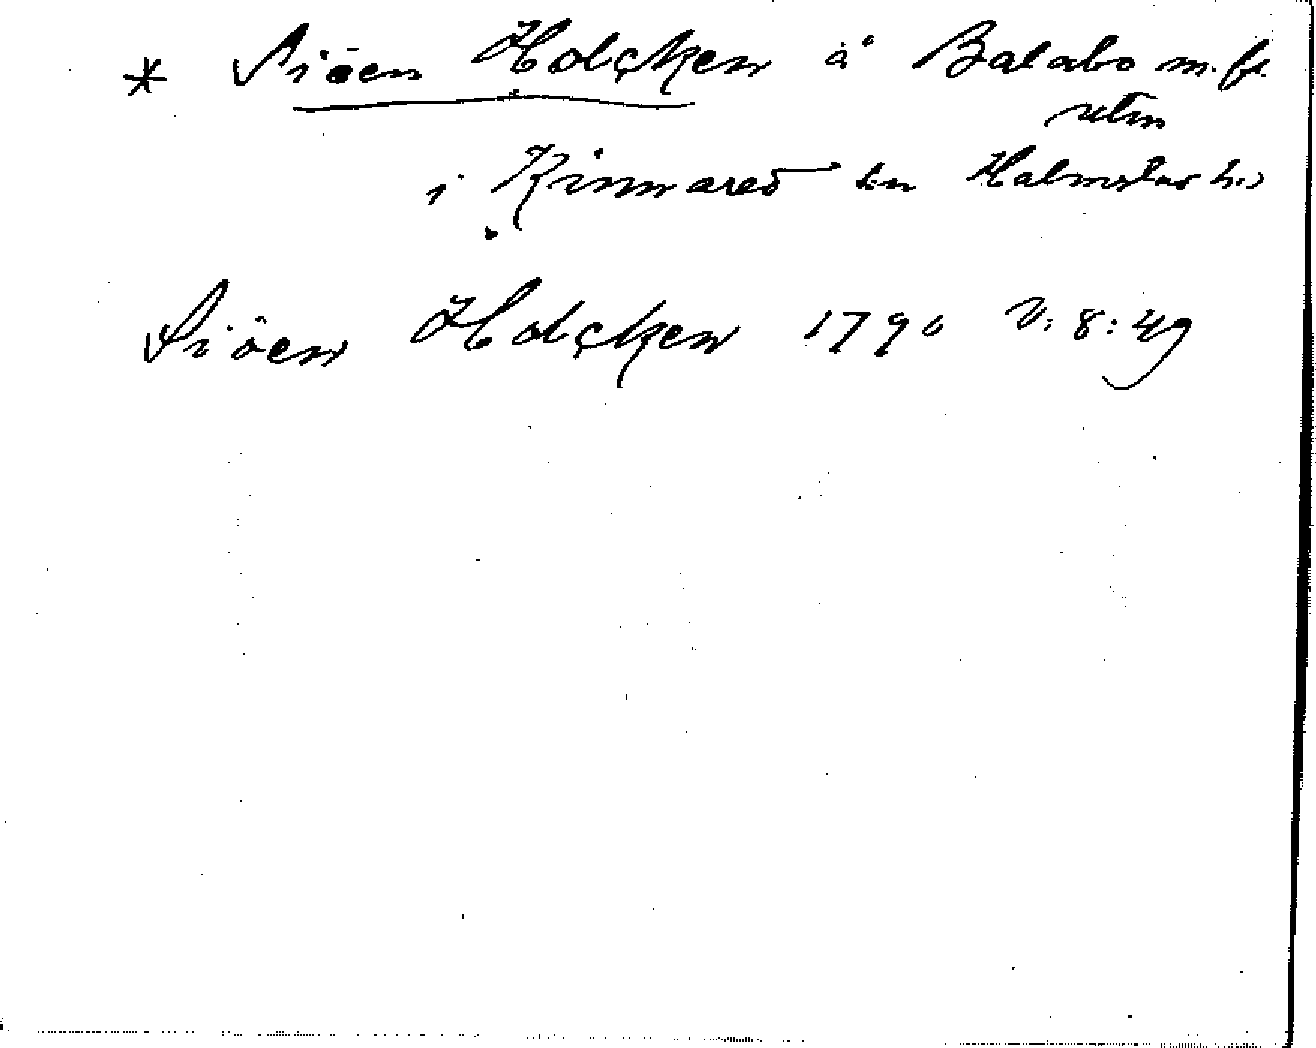 * Siöen Holcken å Balabo m.fl.
i Kinnared sn Halmstads h.
Siöen Holcken 1790 V: 8: 49